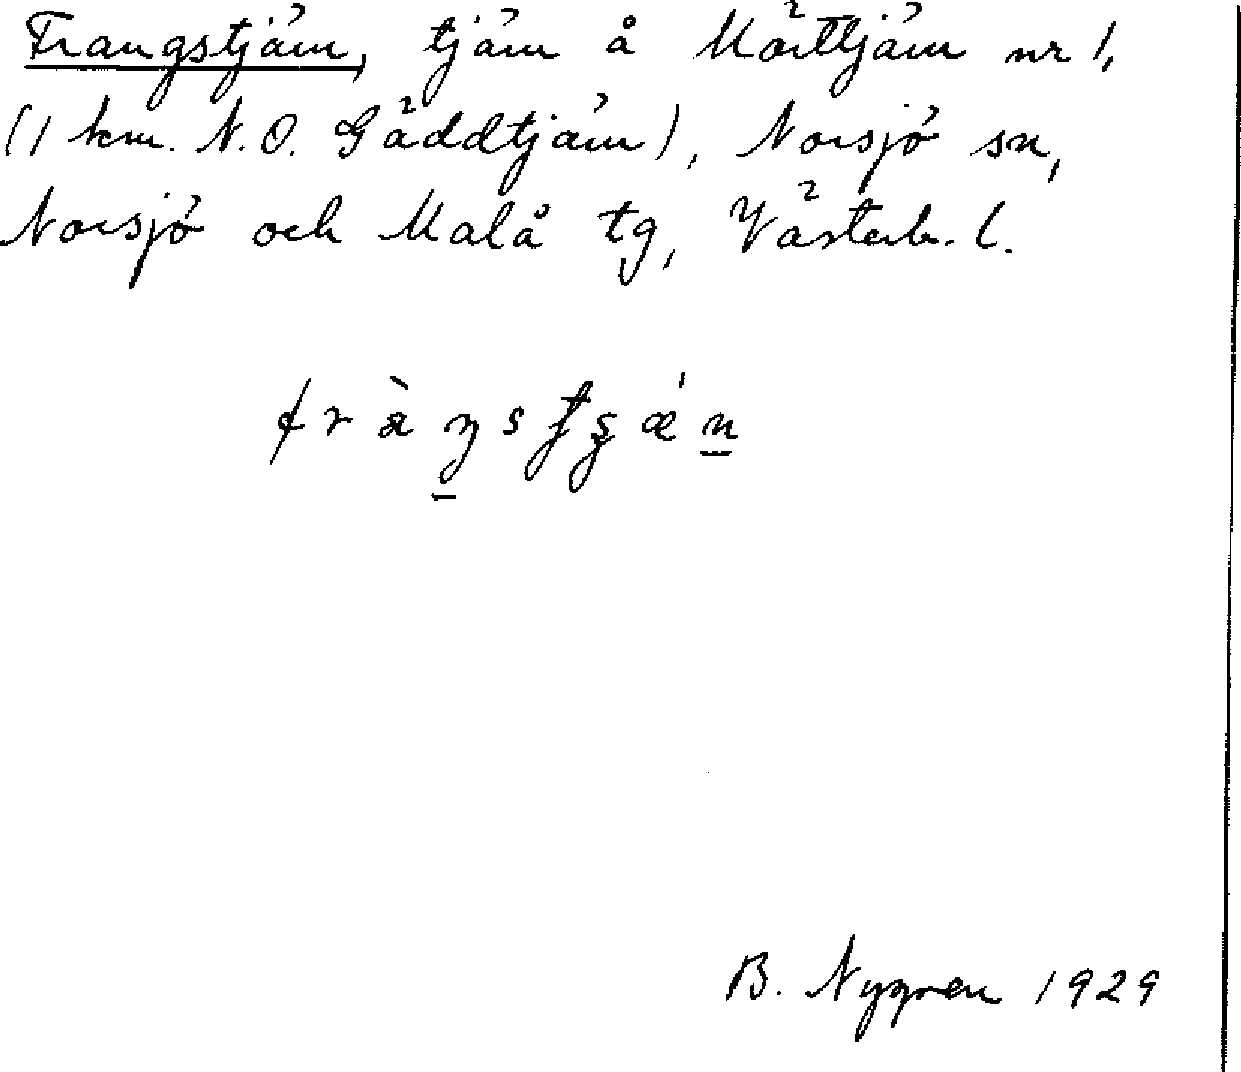 Frangstjärn, tjärn å Mörttjärn nr 1,
(1 km. N.O. Gäddtjärn), Norsjö sn,
Norsjö och Malå tg, Västerb. l.
B. Nygren 1929